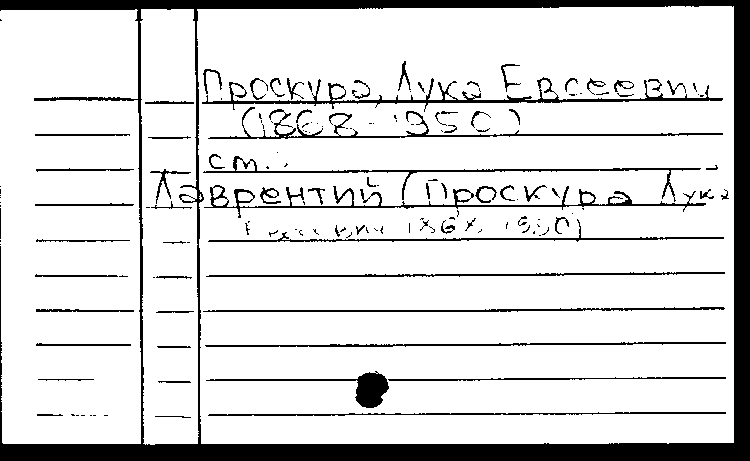 Проскура, Лука Евсееви
(1868-1950)
см.
Лаврентий (Проскура Лука
1868 1950)